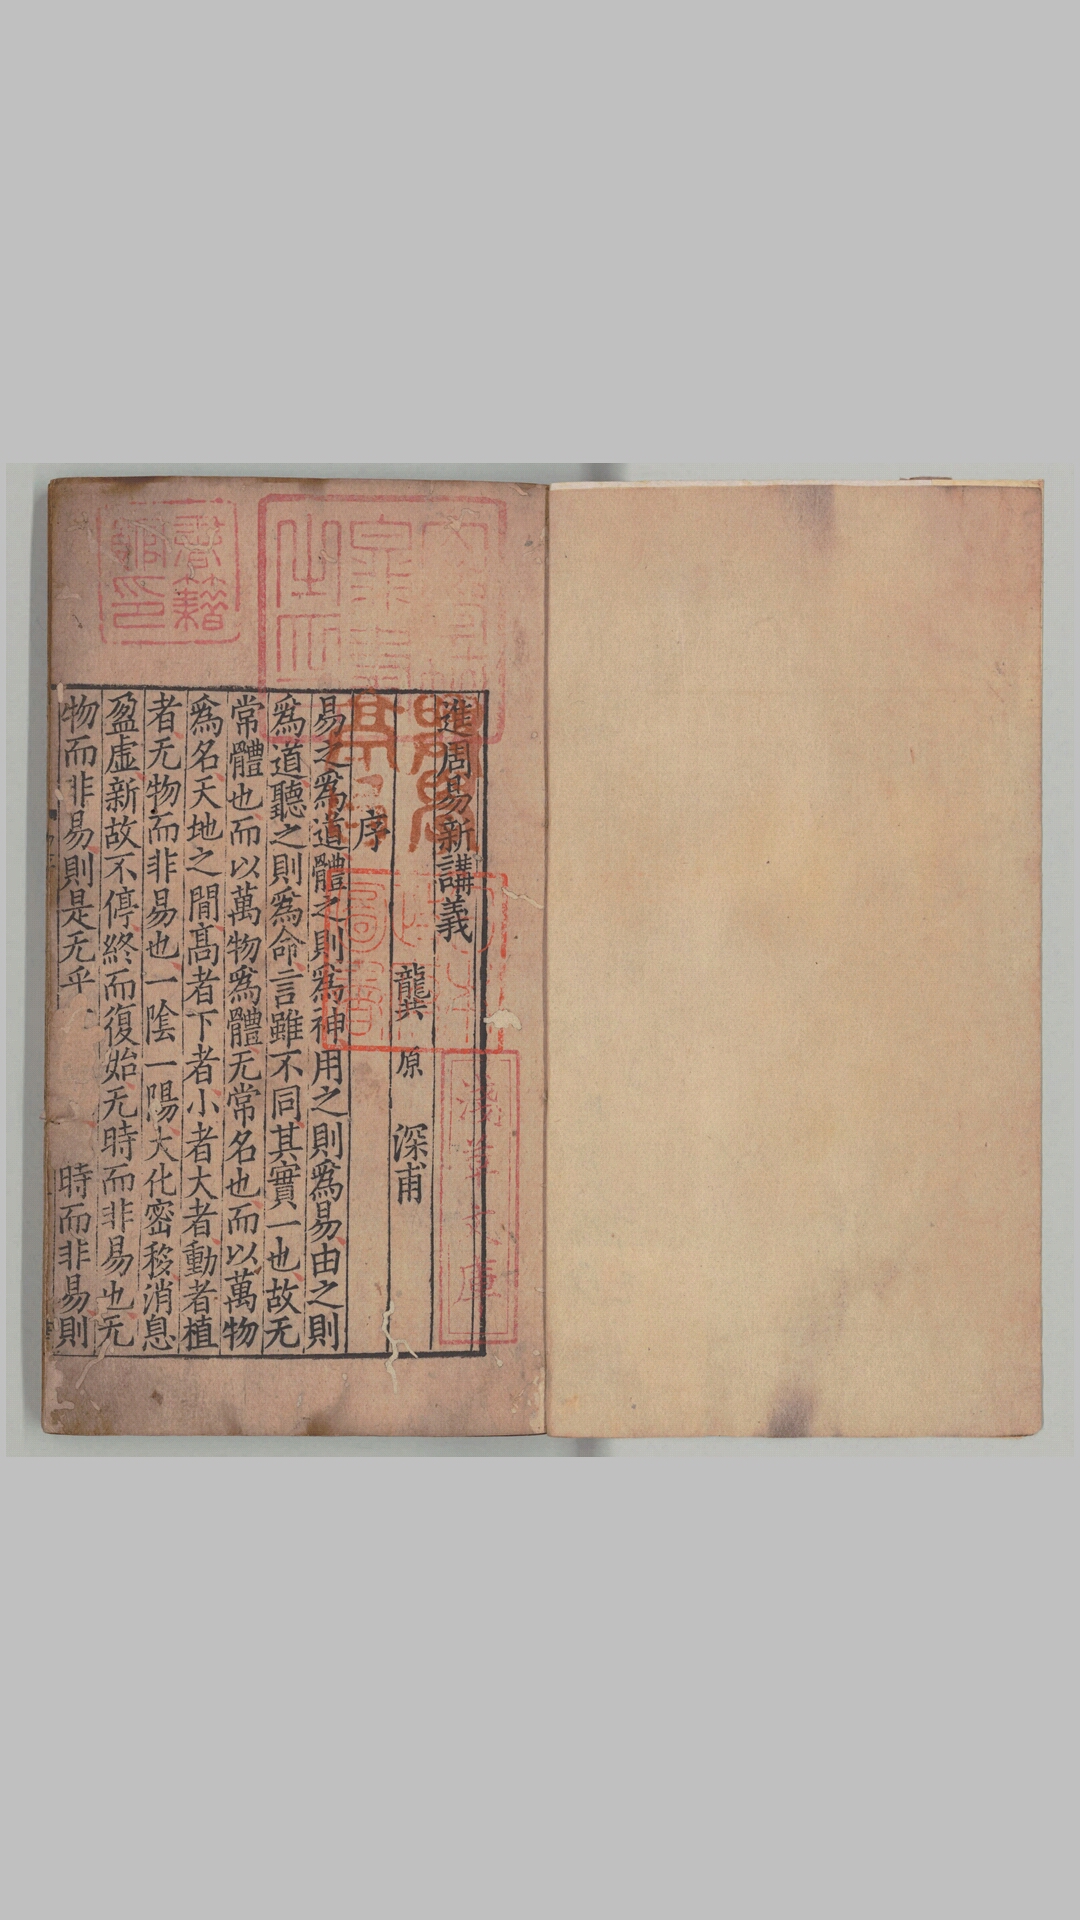 進周易新講義
龔原 深甫
序
易之爲道體之則爲神用之則爲易由之則
爲道聽之則爲命言雖不同其實一也故无
常體也而以萬物爲體无常名也而以萬物
爲名天地之間髙者下者小者大者動者植
者无物而非易也一隂一陽大化密移消息
盈虚新故不停終而復始无時而非易也无
物而非易則是无乎 時而非易則
書籍
館印
淺草文庫